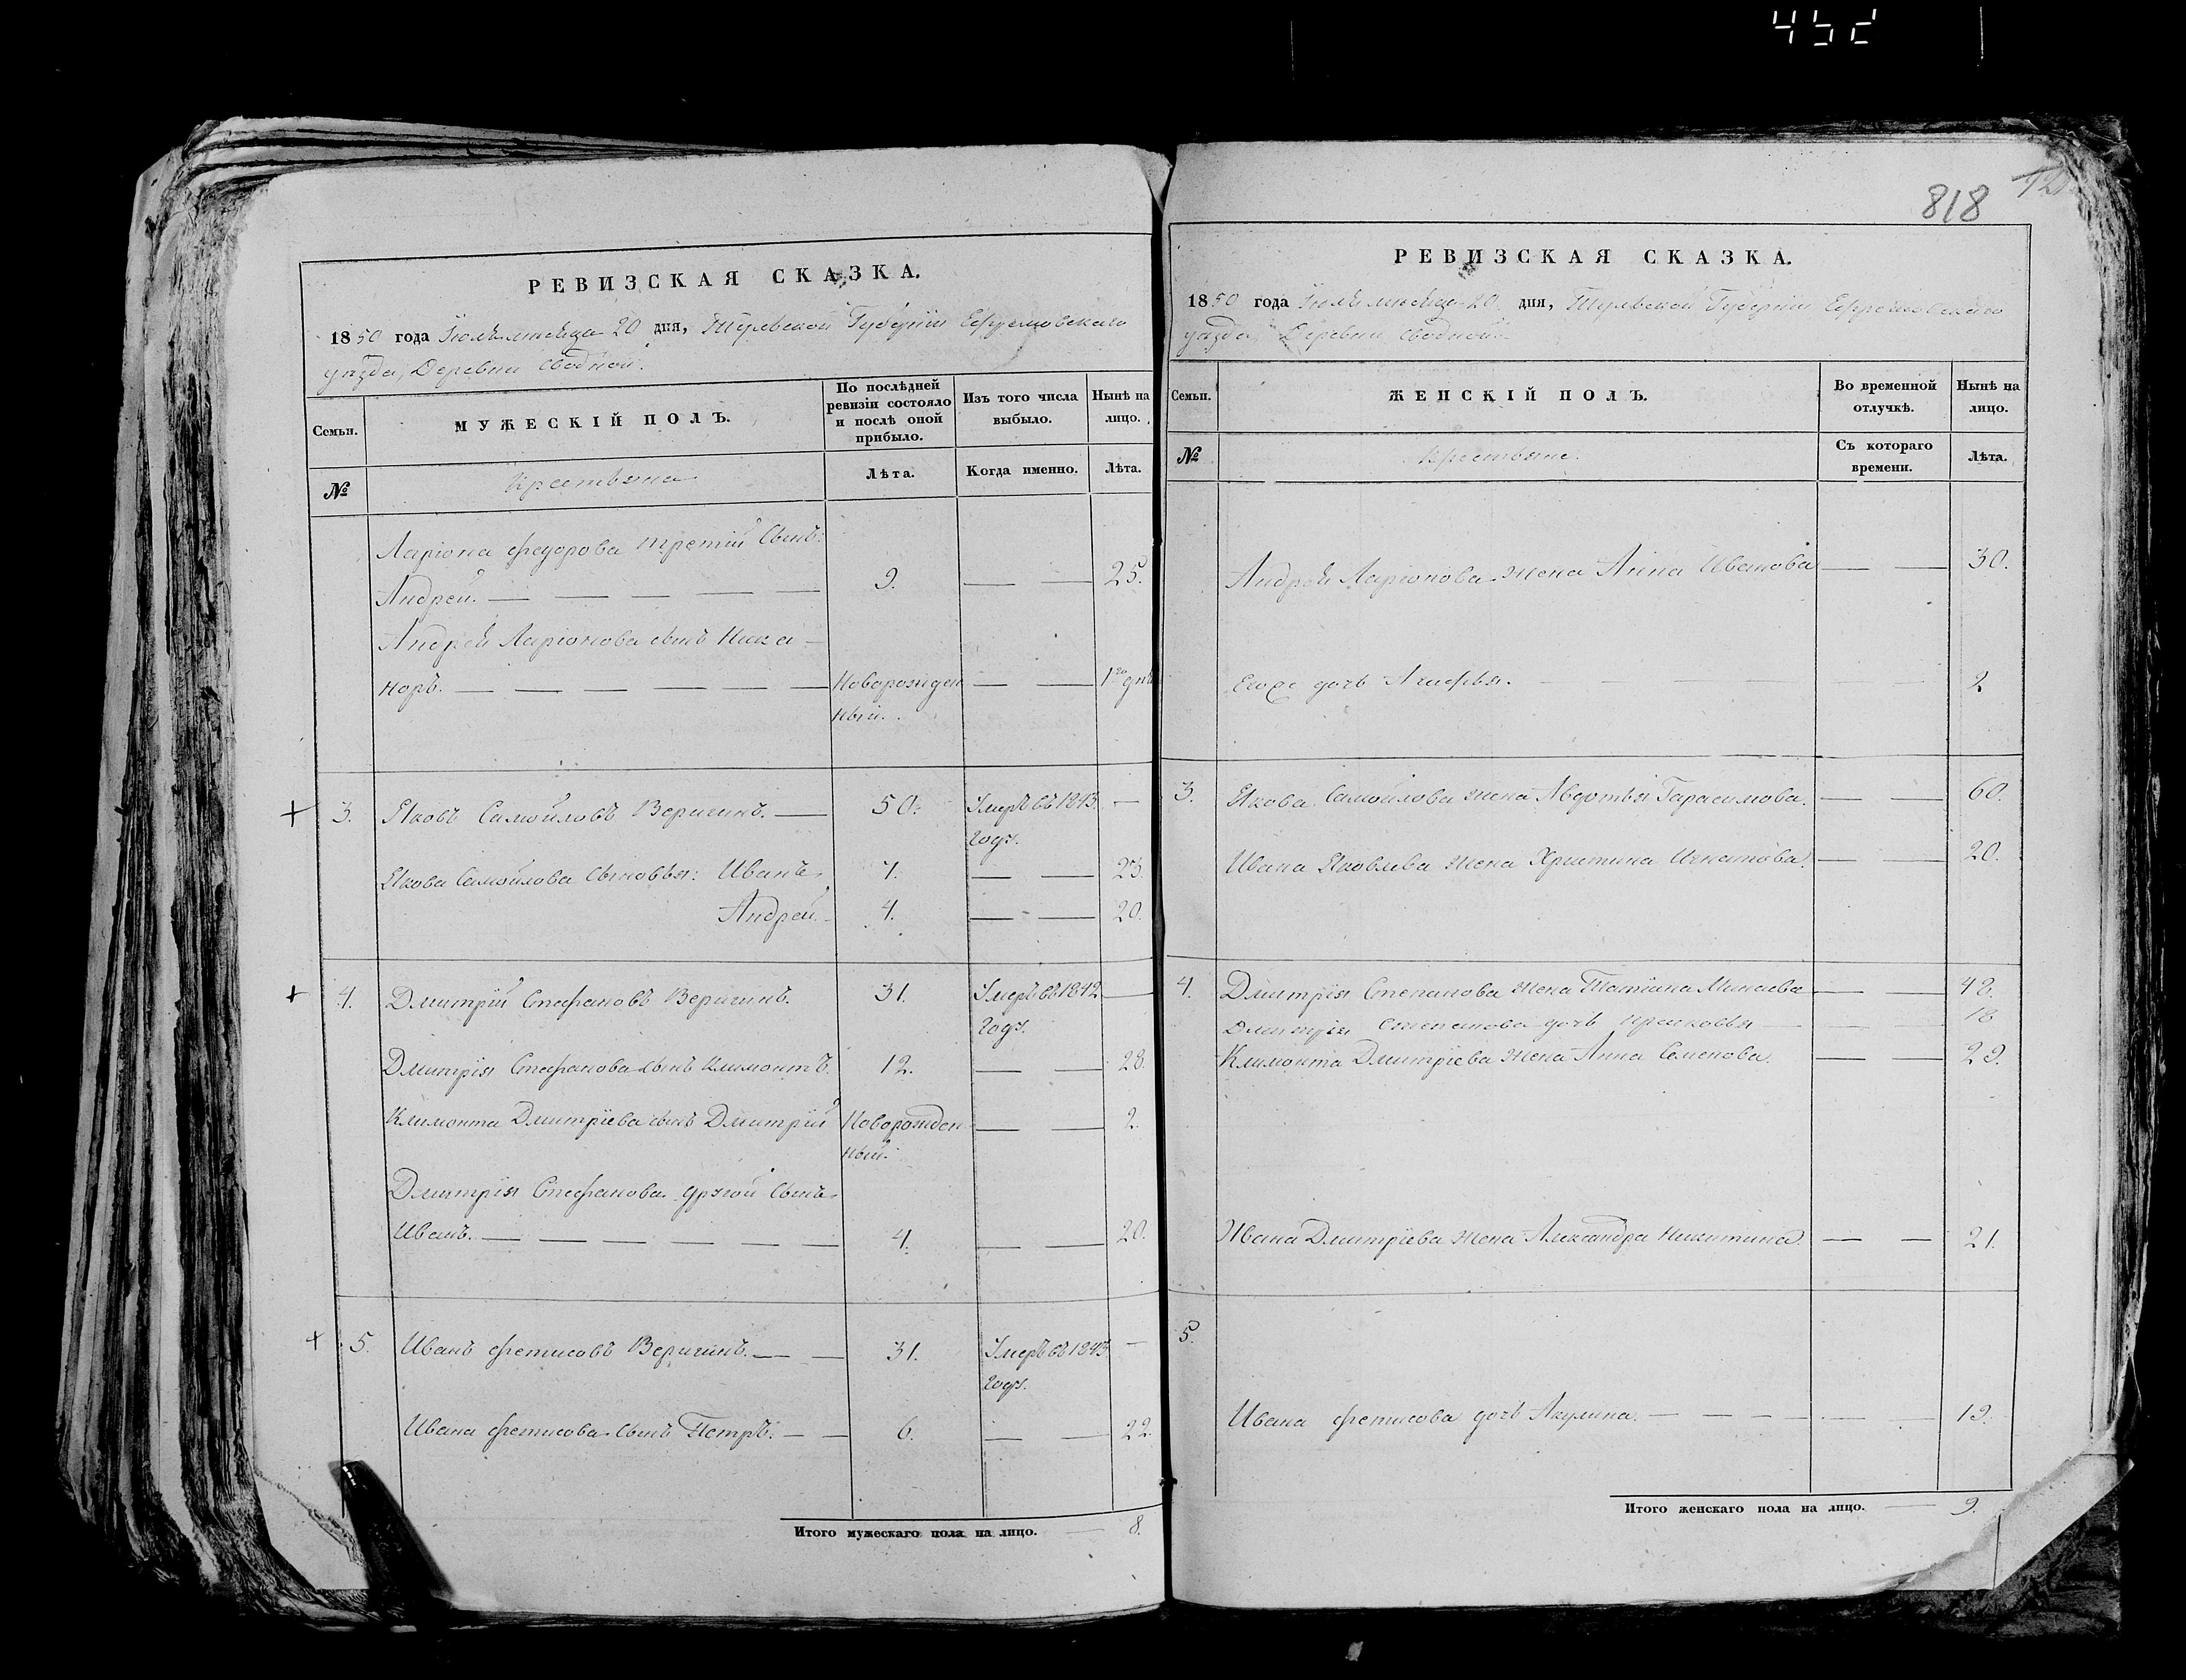 452
818
РЕВИЗСКАЯ СКАЗКА.
1850 года Іюля мѣсяца 20 дня, Тульской Губерніи Ефремовскаго
уѣзда, Деревни Сводной.
Семьи.
МУЖЕСКІЙ ПОЛЪ.
По послѣдней ревизіи состояло и послѣ оной прибыло.
Изъ того числа выбыло.
Нынѣ на лицо.
№
Крестьяне
Лѣта.
Когда именно.
Лѣта.
Ларіона Федорова третій Сынъ:
Андрей. — — — — — 9. — — 25.
Андрея Ларіонова сынъ Ника-
норъ. — — — — — Новорожден — — 1го дня
ный.
+ 3. Яковъ Самойловъ Веригинъ. — 50. Умеръ въ 1843 —
году.
Якова Самойлова Сыновья: Иванъ. 7. — — 23.
Андрей. 4. — — 20.
+ 4. Дмитрій Стефановъ Веригинъ. 31. Умеръ въ 1842 —
году.
Дмитрія Стефанова сынъ Климонтъ. 12. — — 28.
Климонта Дмитріева сынъ Дмитрій Новорожден — — 2.
ный.
Дмитрія Стефанова другой Сынъ
Иванъ. — — — — — 4. — — 20.
+ 5. Иванъ Фетисовъ Веригинъ. — — 31. Умеръ въ 1843 —
году.
Ивана Фетисова Сынъ Петръ. — — 6. — — 22.
Итого мужескаго пола на лицо. — 8.
РЕВИЗСКАЯ СКАЗКА.
1850 года Іюля мѣсяца 20 дня, Тульской Губерніи Ефремовскаго
уѣзда, Деревни Сводной.
Семьи.
ЖЕНСКІЙ ПОЛЪ.
Во временной отлучкѣ.
Нынѣ на лицо.
№
Крестьяне.
Съ котораго времени.
Лѣта.
Андрея Ларіонова жена Анна Иванова — — 30.
Его дочь Агафья. — — — — 2
3. Якова Самойлова жена Авдотья Гарасимова. — — 60.
Ивана Яковлева жена Христина Игнатова — — 20.
4. Дмитрія Степанова жена Татіана Минаева — — 48.
Дмитрія Степанова дочь Прасковья — — 18
Климонта Дмитріева жена Анна Семенова. — — 29.
Ивана Дмитріева жена Александра Никитина. — — 21.
5.
Ивана Фетисова дочь Акулина. — — — — — 19.
Итого женскаго пола на лицо. — 9.